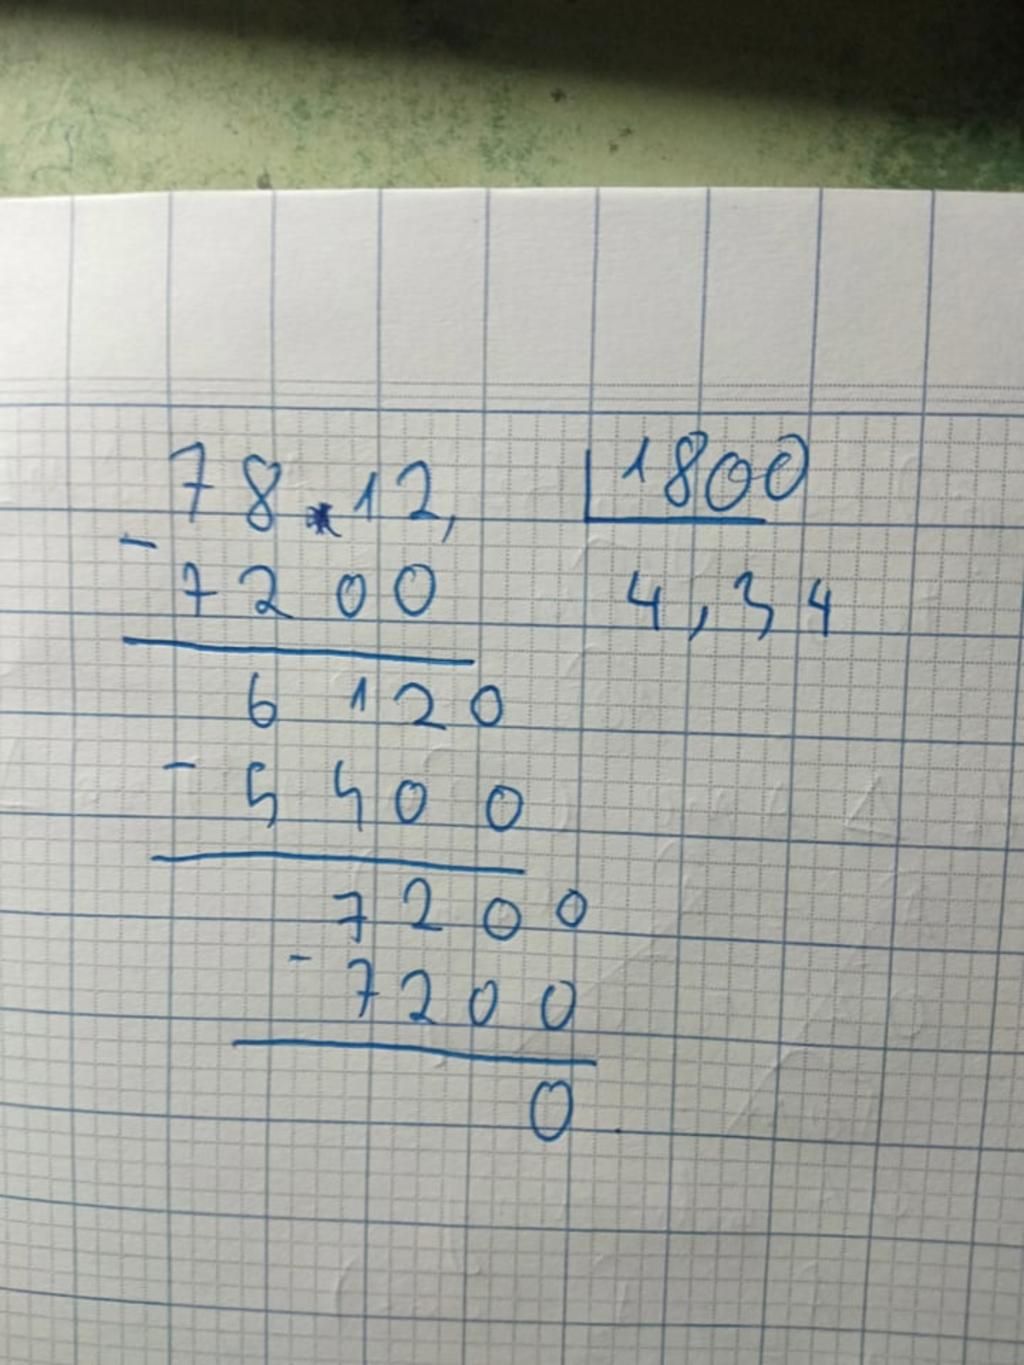 78 12, 1800
- 7200 4,34
6120
- 5400
7200
- 7200
0